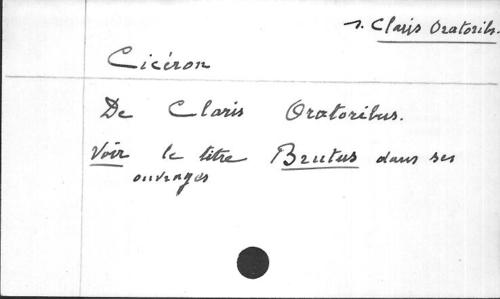 s. Claris Oratorib.
Cicéron
De Claris Oratoribus.
Voir le titre Brutus dans ses
ouvrages